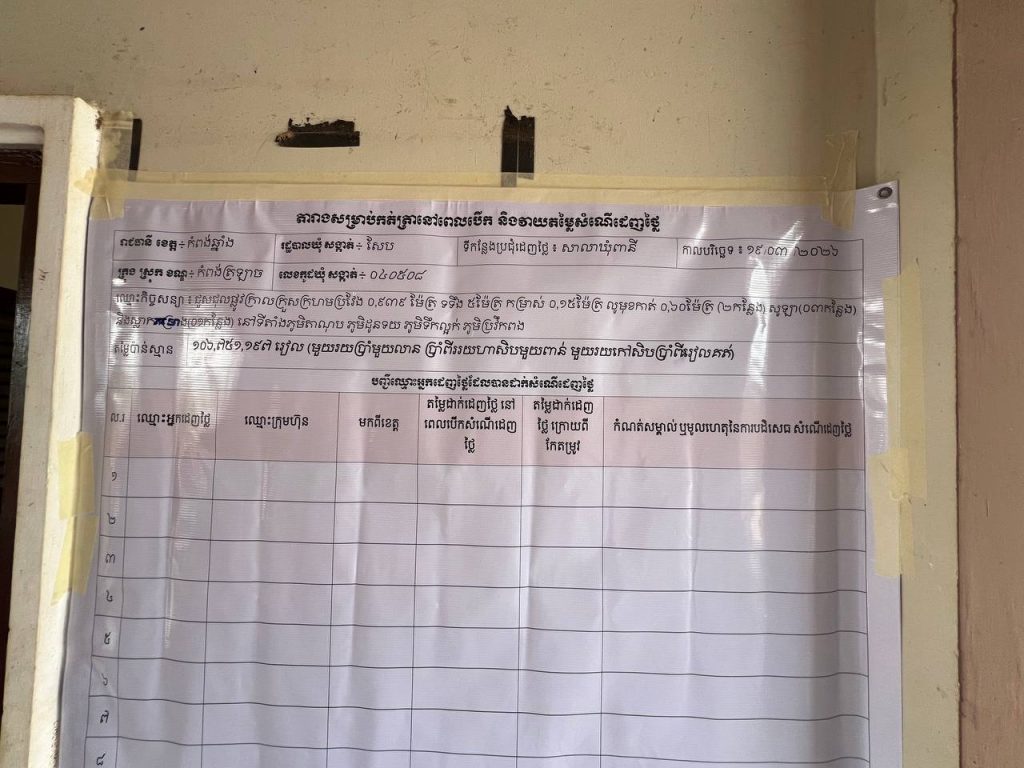 តារាងសម្រាប់កត់ត្រានៅពេលបើក និងវាយតម្លៃសំណើដេញថ្លៃ
រាជធានី ខេត្ត÷ កំពង់ឆ្នាំង រដ្ឋបាលឃុំ សង្កាត់÷ សែប ទីកន្លែងប្រជុំដេញថ្លៃ ៖ សាលាឃុំពានី កាលបរិច្ឆេទ ៖ ១៩/០៣ /២០២៦
ក្រុង ស្រុក ខណ្ឌ÷ កំពង់ត្រឡាច លេខកូដឃុំ សង្កាត់÷ ០៤០៥០៨
ឈ្មោះកិច្ចសន្យា ៖ ជួសជុលផ្លូវក្រាលគ្រួសក្រហមប្រវែង ០,៩៣៩ ម៉ែត្រ ទទឹង ៥ម៉ែត្រ កម្រាស់ ០,១៥ម៉ែត្រ លូមុខកាត់ ០,៦០ម៉ែត្រ (២កន្លែង) សូឡា(០៣កន្លែង)
និងស្លាក (០១កន្លែង) នៅទីតាំងភូមិតាណុប ភូមិដូនទយ ភូមិទឹកល្អក់ ភូមិប្រវឹកពង
តម្លៃប៉ាន់ស្មាន ១០៦,៧៥១,១៩៧ រៀល (មួយរយប្រាំមួយលាន ប្រាំពីររយហាសិបមួយពាន់ មួយរយកៅសិបប្រាំពីររៀលគត់)
បញ្ជីឈ្មោះអ្នកដេញថ្លៃដែលបានដាក់សំណើដេញថ្លៃ
ល.រ ឈ្មោះអ្នកដេញថ្លៃ ឈ្មោះក្រុមហ៊ុន មកពីខេត្ត តម្លៃដាក់ដេញថ្លៃ នៅពេលបើកសំណើដេញថ្លៃ តម្លៃដាក់ដេញថ្លៃ ក្រោយពីកែតម្រូវ កំណត់សម្គាល់ ឬមូលហេតុនៃការបដិសេធ សំណើដេញថ្លៃ
១
២
៣
៤
៥
៦
៧
៨